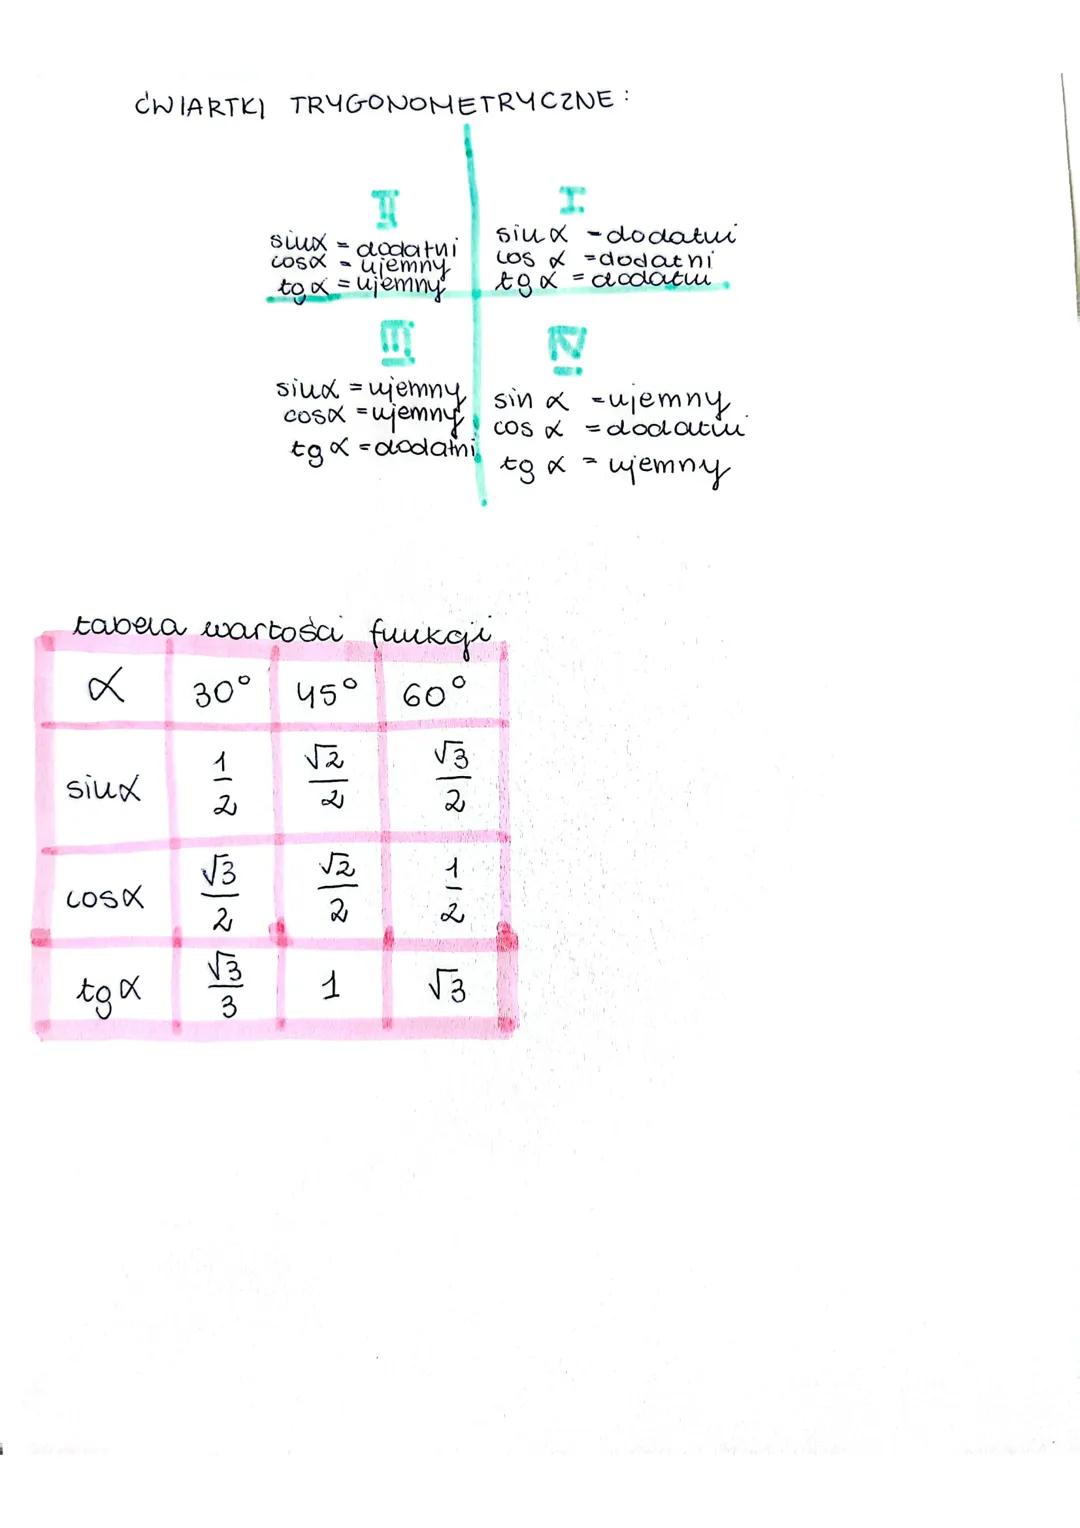 ĆWIARTKI TRYGONOMETRYCZNE:
II
sinα = dodatni
cosα - ujemny
tgα = ujemny
I
sinα - dodatni
cos α = dodatni
tgα = dodatni
III
sinα = ujemny
cosα = ujemny
tgα = dodatni
IV
sin α - ujemny
cos α = dodatni
tg α = ujemny
tabela wartości funkcji
α 30° 45° 60°
sinα 1/2 √2/2 √3/2
cosα √3/2 √2/2 1/2
tgα √3/3 1 √3